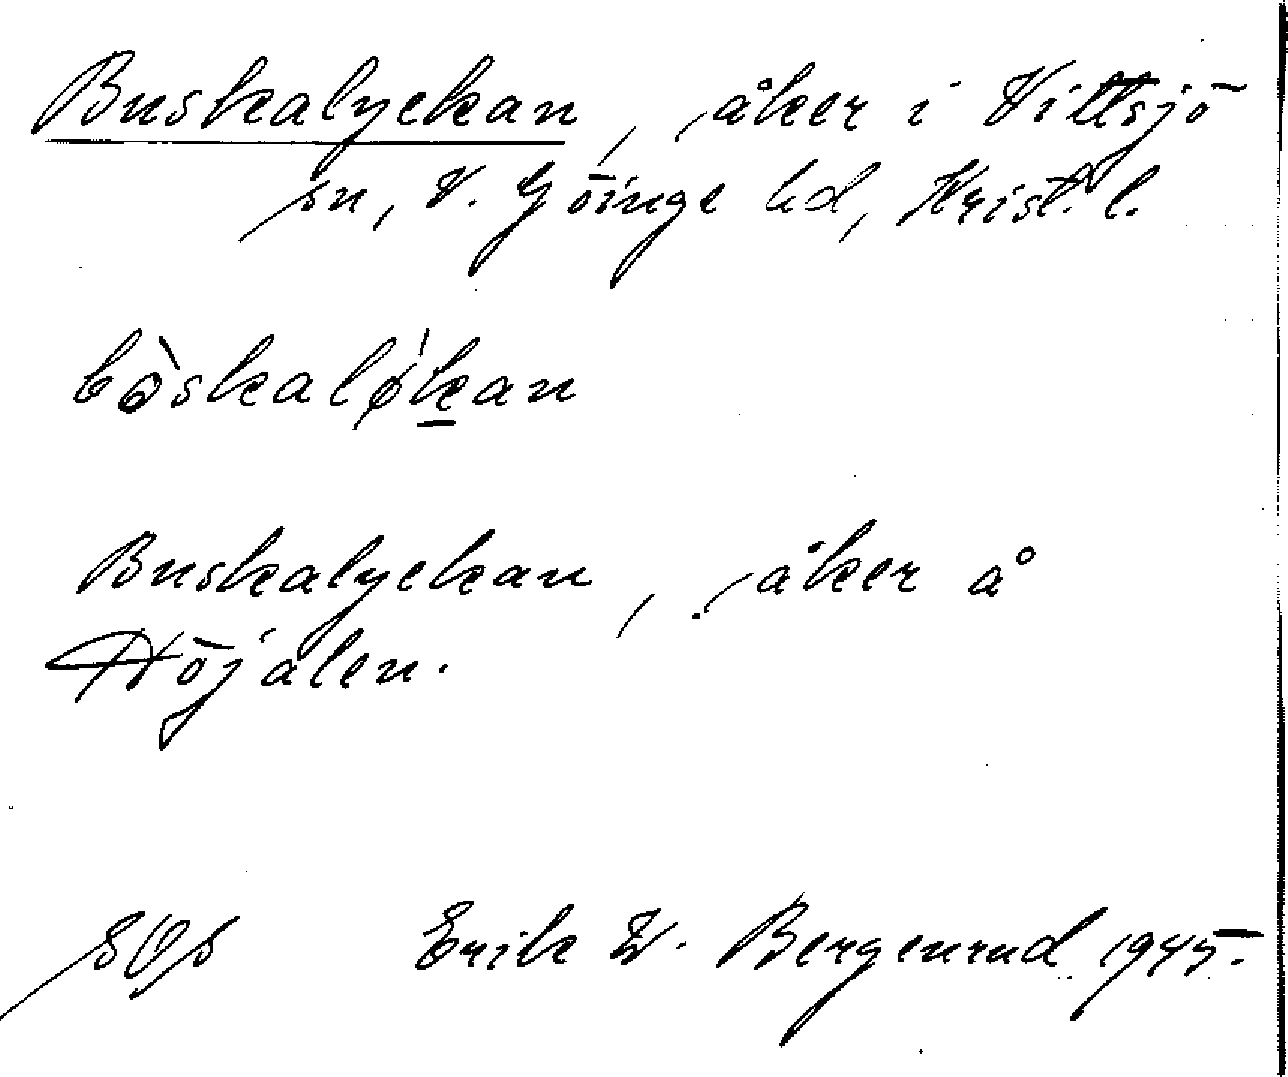 Buskalyckan, åker i Vittsjö
sn, V. Göinge hd, Krist. l.
bòskalǿkan
Buskalyckan, åker å
Höjalen.
SOS Erik W. Bergenrud 1945.